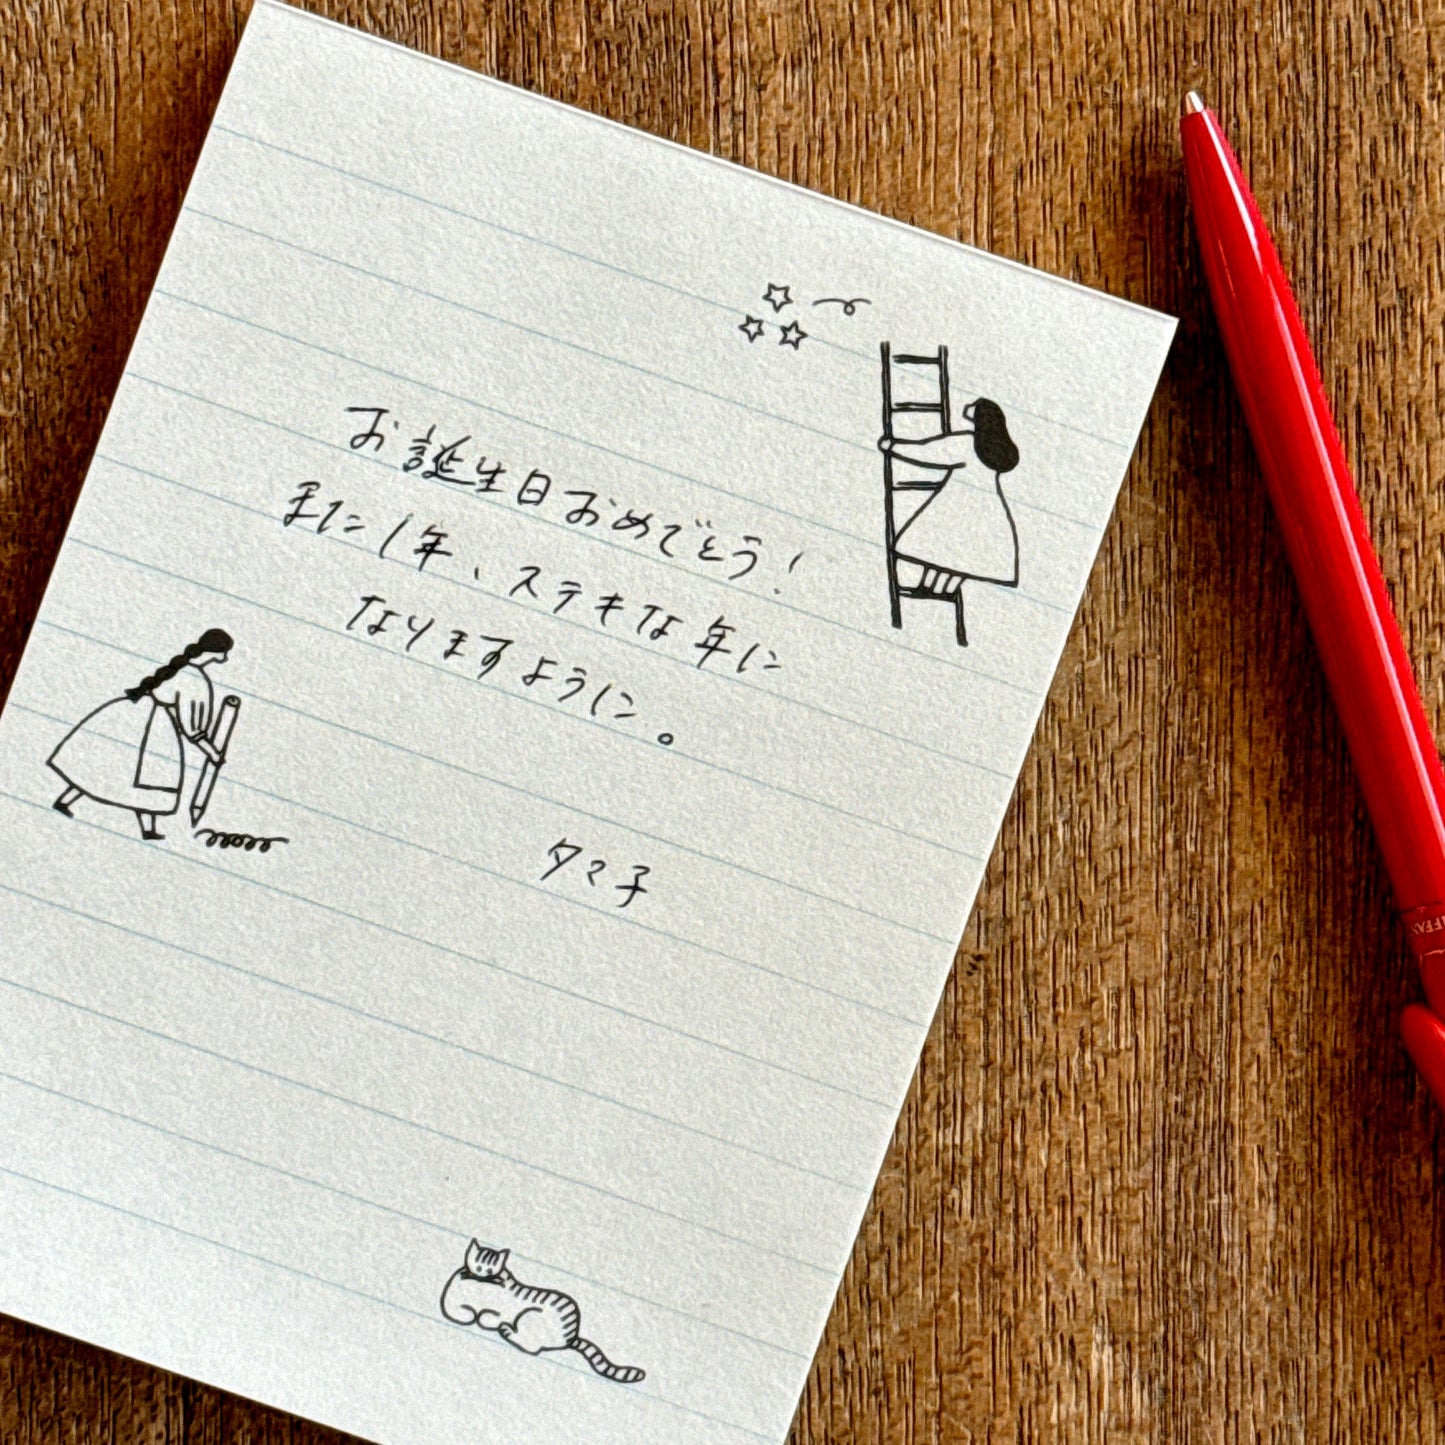 お誕生日おめでとう!
また1年、ステキな年に
なりますように。
タマ子